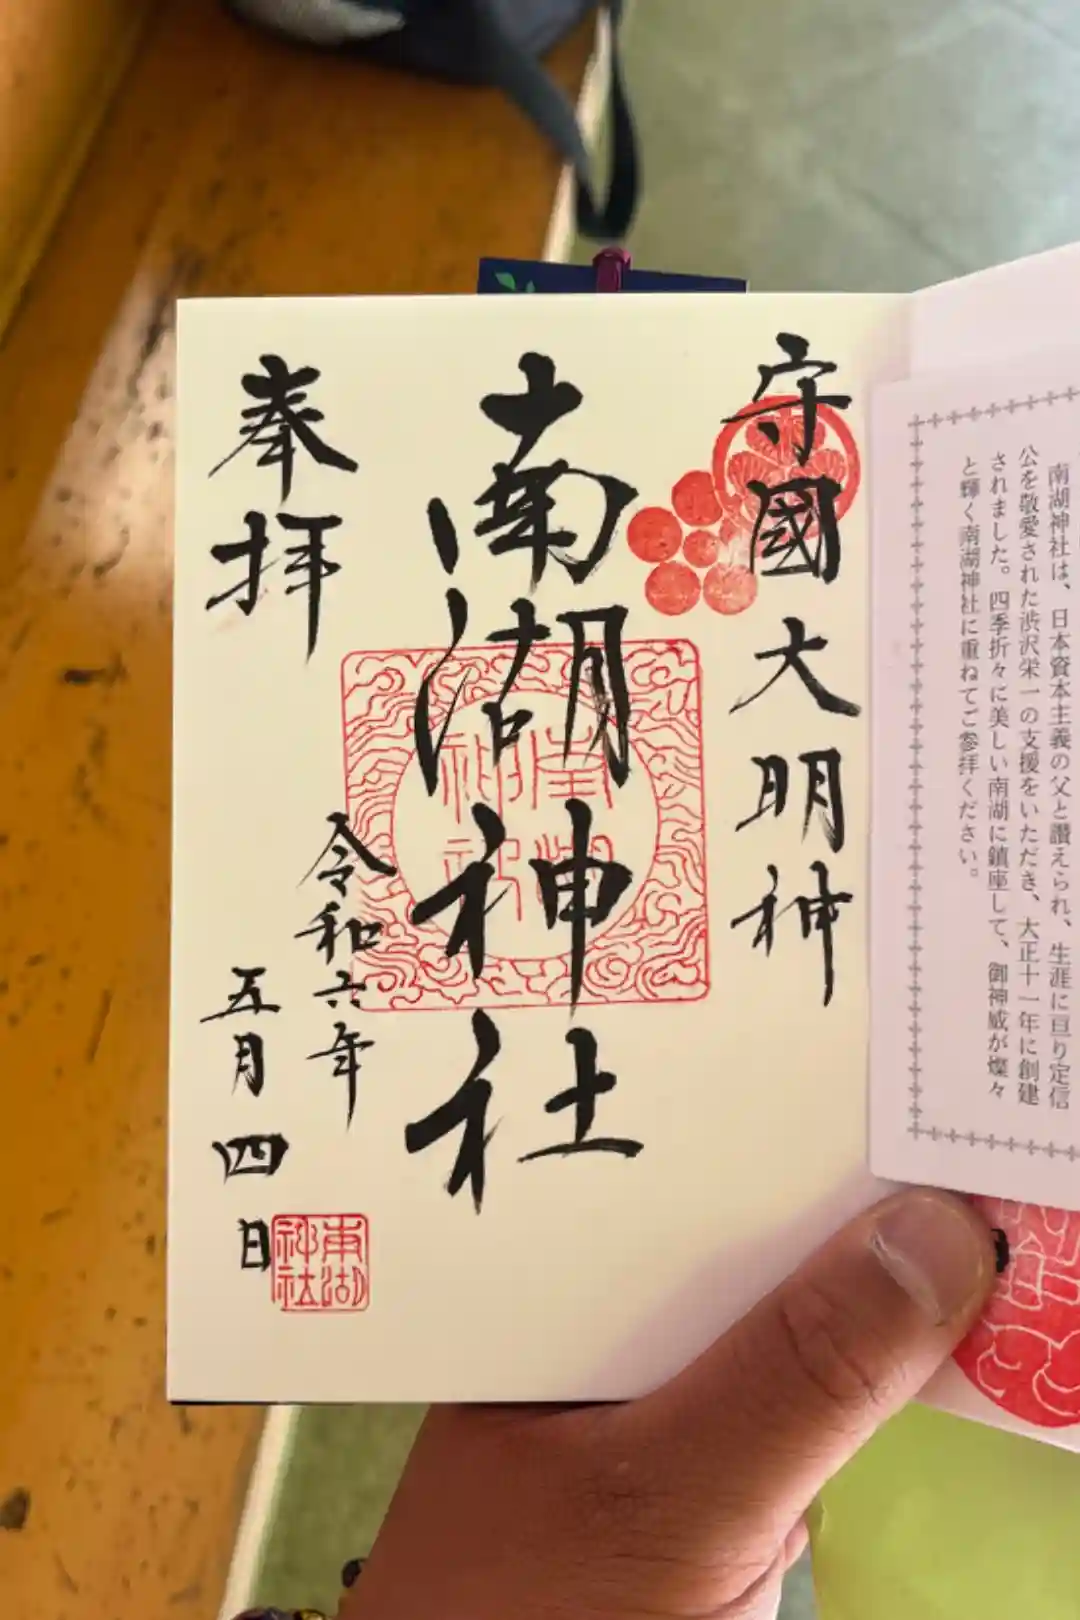 南湖神社は、日本資本主義の父と讃えられ、生涯に亘り定信
公を敬愛された渋沢栄一の支援をいただき、大正十一年に創建
されました。四季折々に美しい南湖に鎮座して、御神威が燦々
と輝く南湖神社に重ねてご参拝ください。
守國大明神
南湖神社
奉拝
令和六年
五月四日
南湖
神社
南湖
神社